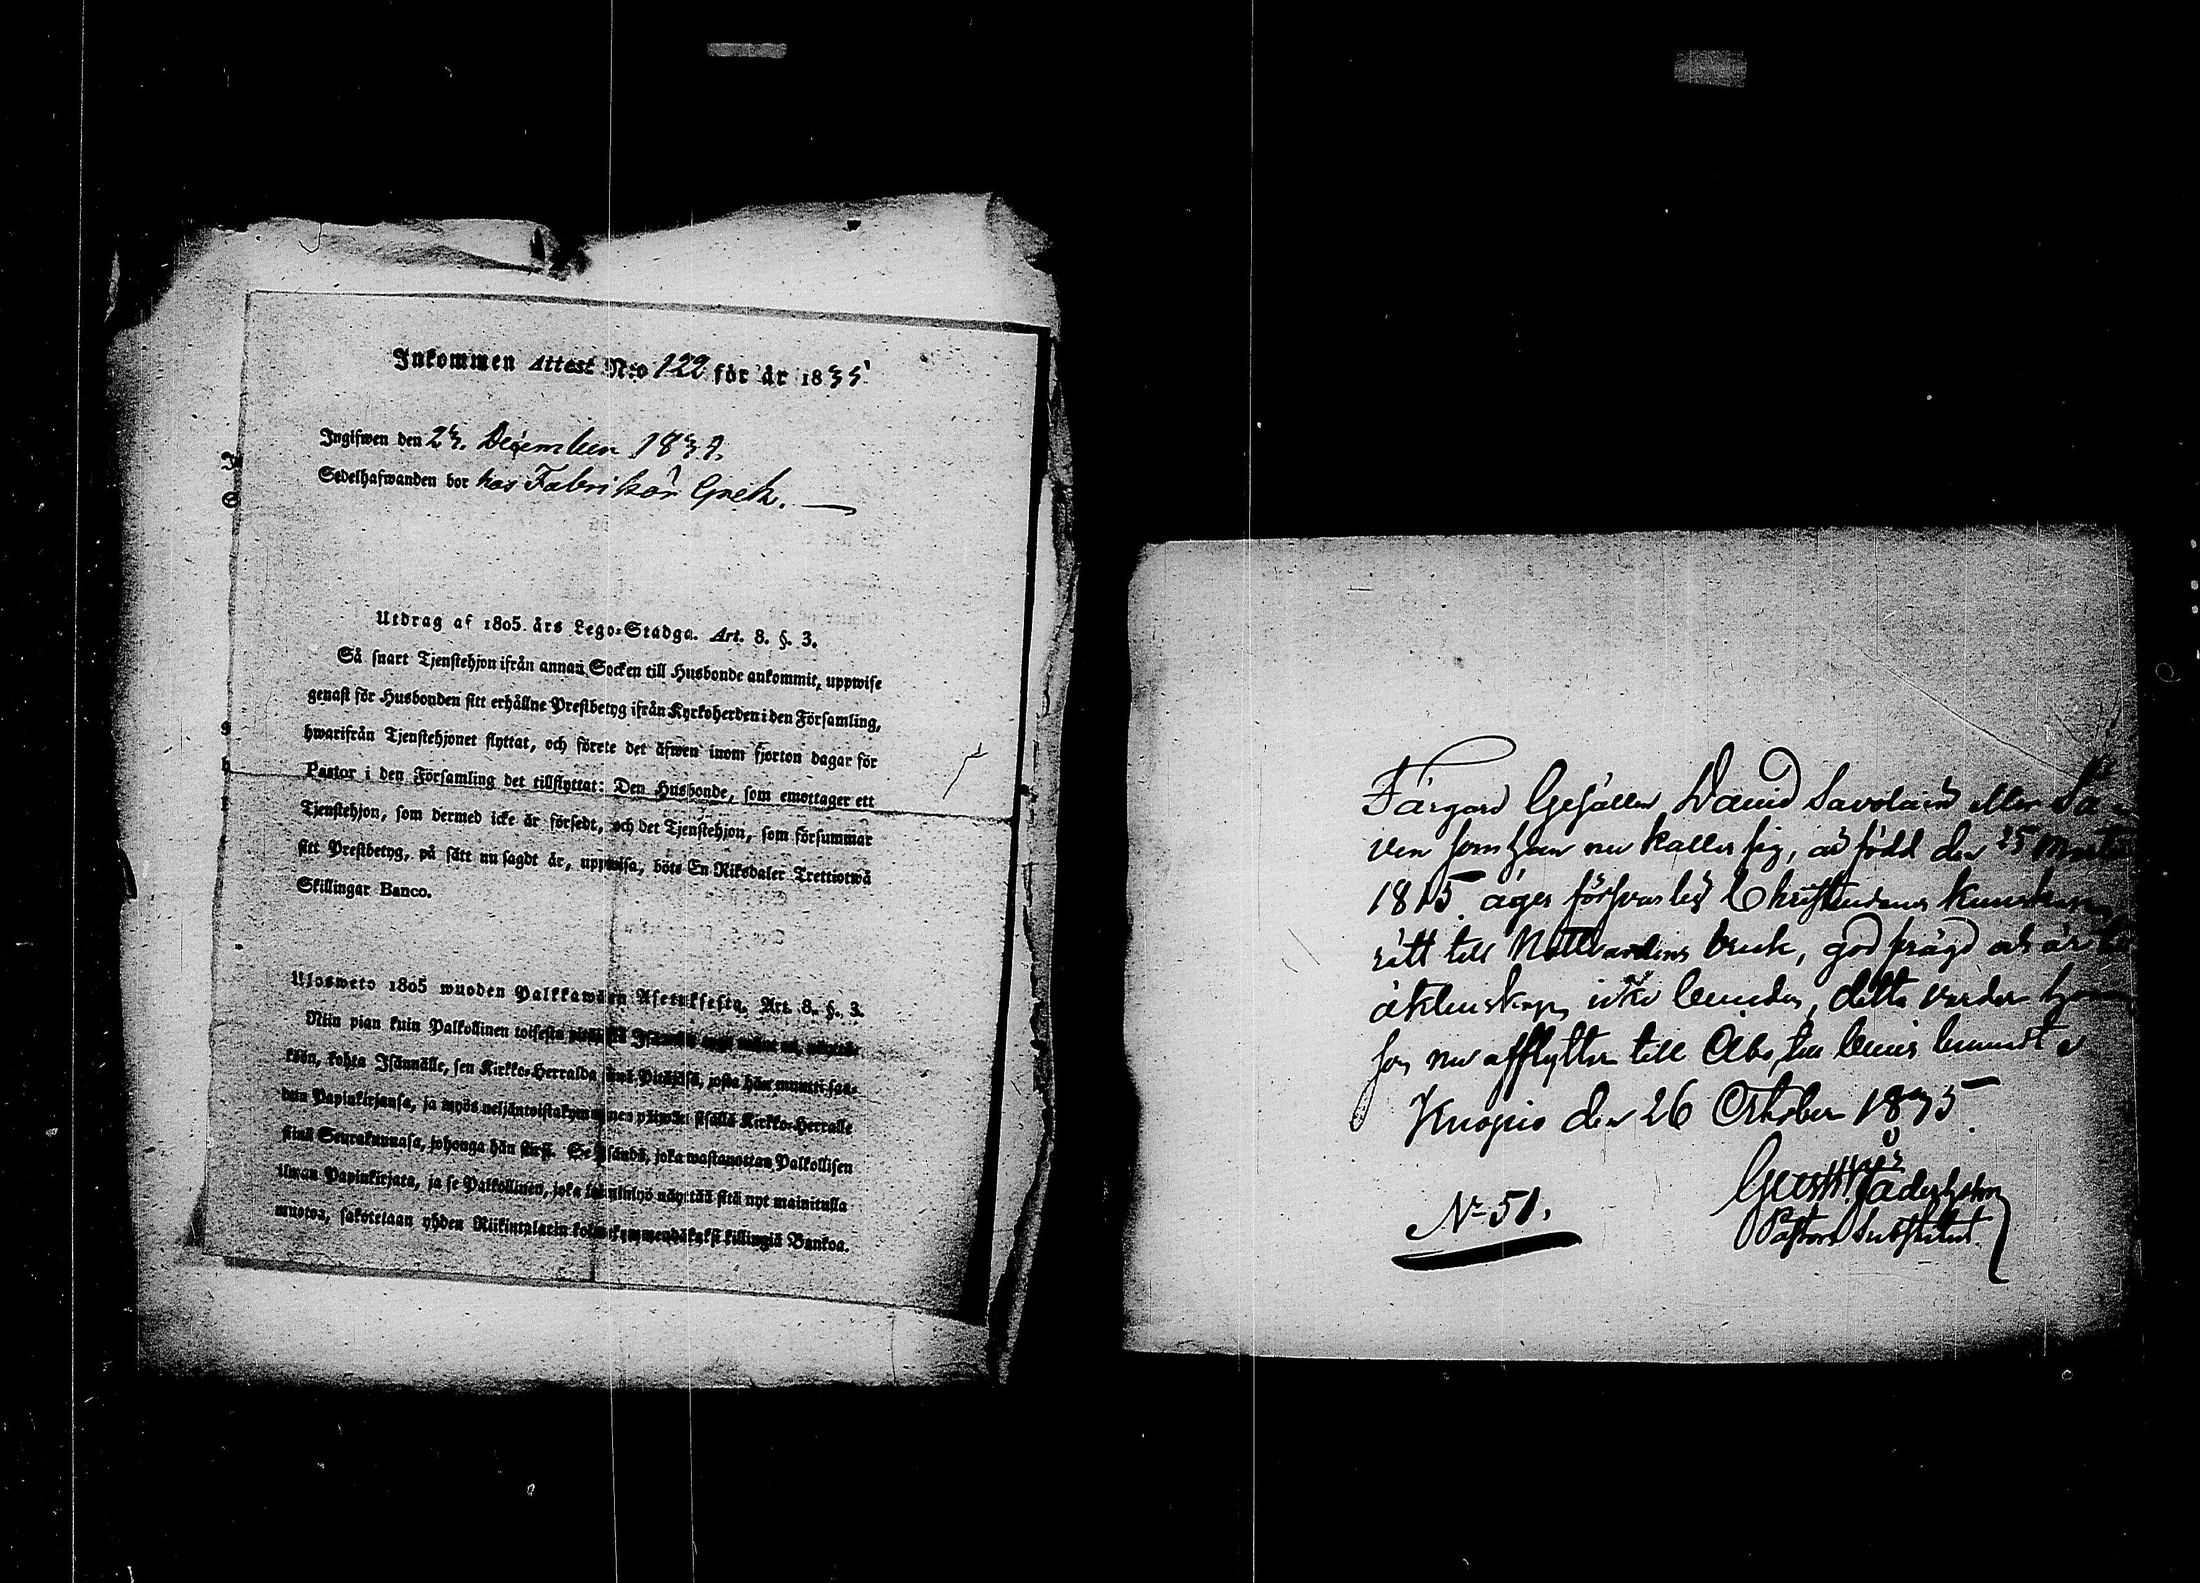 Inkommen Attest N:o 122 för år 1835
Ingifwen den 23. December 1834.
Sedelhafwanden bor hos Fabrikör
Utdrag af 1805 års Lego-Stadga. Art. 8. §. 3.
Så snart Tjenstehjon ifrån annan Socken till Husbonde ankommit, uppwise
genast för Husbonden sitt erhållne Prestbetyg ifrån Kyrkoherden i den Församling,
hwarifrån Tjenstehjonet flyttat, och förete det äfwen inom fjorton dagar för
Pastor i den Församling det tillflyttat: Den Husbonde, som emottager ett
Tjenstehjon, som dermed icke är försedt, och det Tjenstehjon, som försummar
sitt Prestbetyg, på sätt nu sagdt är, uppwisa, böte En Riksdaler Trettiotwå
Skillingar Banco.
Ulosweto 1805 wuoden Palkkawäen Asetuksesta. Art. 8. §. 3.
Niin pian kuin Palkollinen toisesta
köön, kohta Isännälle, sen Kirkko-Herralda siinä Pitäjäsä, josta hän muutti saa-
dun Papinkirjansa, ja myös neljäntoistakymmenen päiwän sisällä Kirkko-Herralle
siinä Seurakunnasa, johonga hän siirsi. Se Isändä, joka wastanottaa Palkollisen
ilman Papinkirjata, ja se Palkollinen, joka laiminlyö näyttää sitä nyt mainitulla
muotoa, sakotetaan yhden Riikintalarin kolmekymmendäkaksi killingiä Bankoa.
Färgare Gesällen David Savolain eller Sa-
ven som han nu kallar sig, är född den 25 Martii
1815 äger försvarlig Christendoms kunskap,
rätt till Nattvardens bruk, god frägd och är till
äktenskap icke bunden, detta varder honom
som nu afflyttar till Åbo, till bevis
Kuopio den 26 October 1835
Pastors Substitut.
N:o 51.